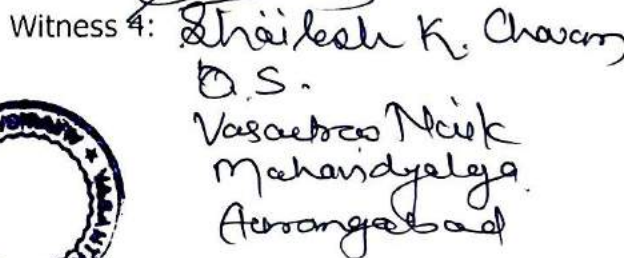 Witness 4: Shailesh K. Chavan
O.S.
Vasantrao Naik
Mahavidyalya
Aurangabad
VASANT